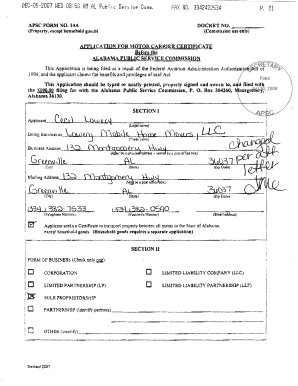 DEC-05-2007 WED 08:50 AM AL Public Service Comm. FAX NO. 3342422534 P. 01
APSC FORM NO. 14A DOCKET NO.
(Property, except household goods) (Commission use only)
APPLICATION FOR MOTOR CARRIER CERTIFICATE
Before the
ALABAMA PUBLIC SERVICE COMMISSION
This Application is being filed as a result of the Federal Aviation Administration Authorization Act of
1994, and the applicant claims the benefits and privileges of said Act
This Application should be typed or neatly printed, properly signed and sworn to, and filed with
the $100.00 filing fee with the Alabama Public Service Commission, P. O. Box 304260, Montgomery,
Alabama 36130.
SECRETARY
Filed
2008
APSC
SECTION I
Applicant Cecil Lowery
(Legal name)
Doing Business as Lowery Mobile Home Movers, LLC
Business Address 132 Montgomery Hwy
Greenville AL 36037
(City) (State) (Zip Code)
Mailing Address 132 Montgomery Hwy
Greenville AL 36037
(City) (State) (Zip Code)
changed
per att
letter
(334) 382-7533 (334) 382-0590
(Telephone Number) (Facsimile Number) (Email address)
Applicant seeks a Certificate to transport property between all points in the State of Alabama,
except household goods (Household goods requires a separate application)
SECTION II
FORM OF BUSINESS (Check only one)
CORPORATION LIMITED LIABILITY COMPANY (LLC)
LIMITED PARTNERSHIP (LP) LIMITED LIABILITY PARTNERSHIP (LLP)
SOLE PROPRIETORSHIP
PARTNERSHIP (Identify partners)
OTHER (Identify)
Revised 2007